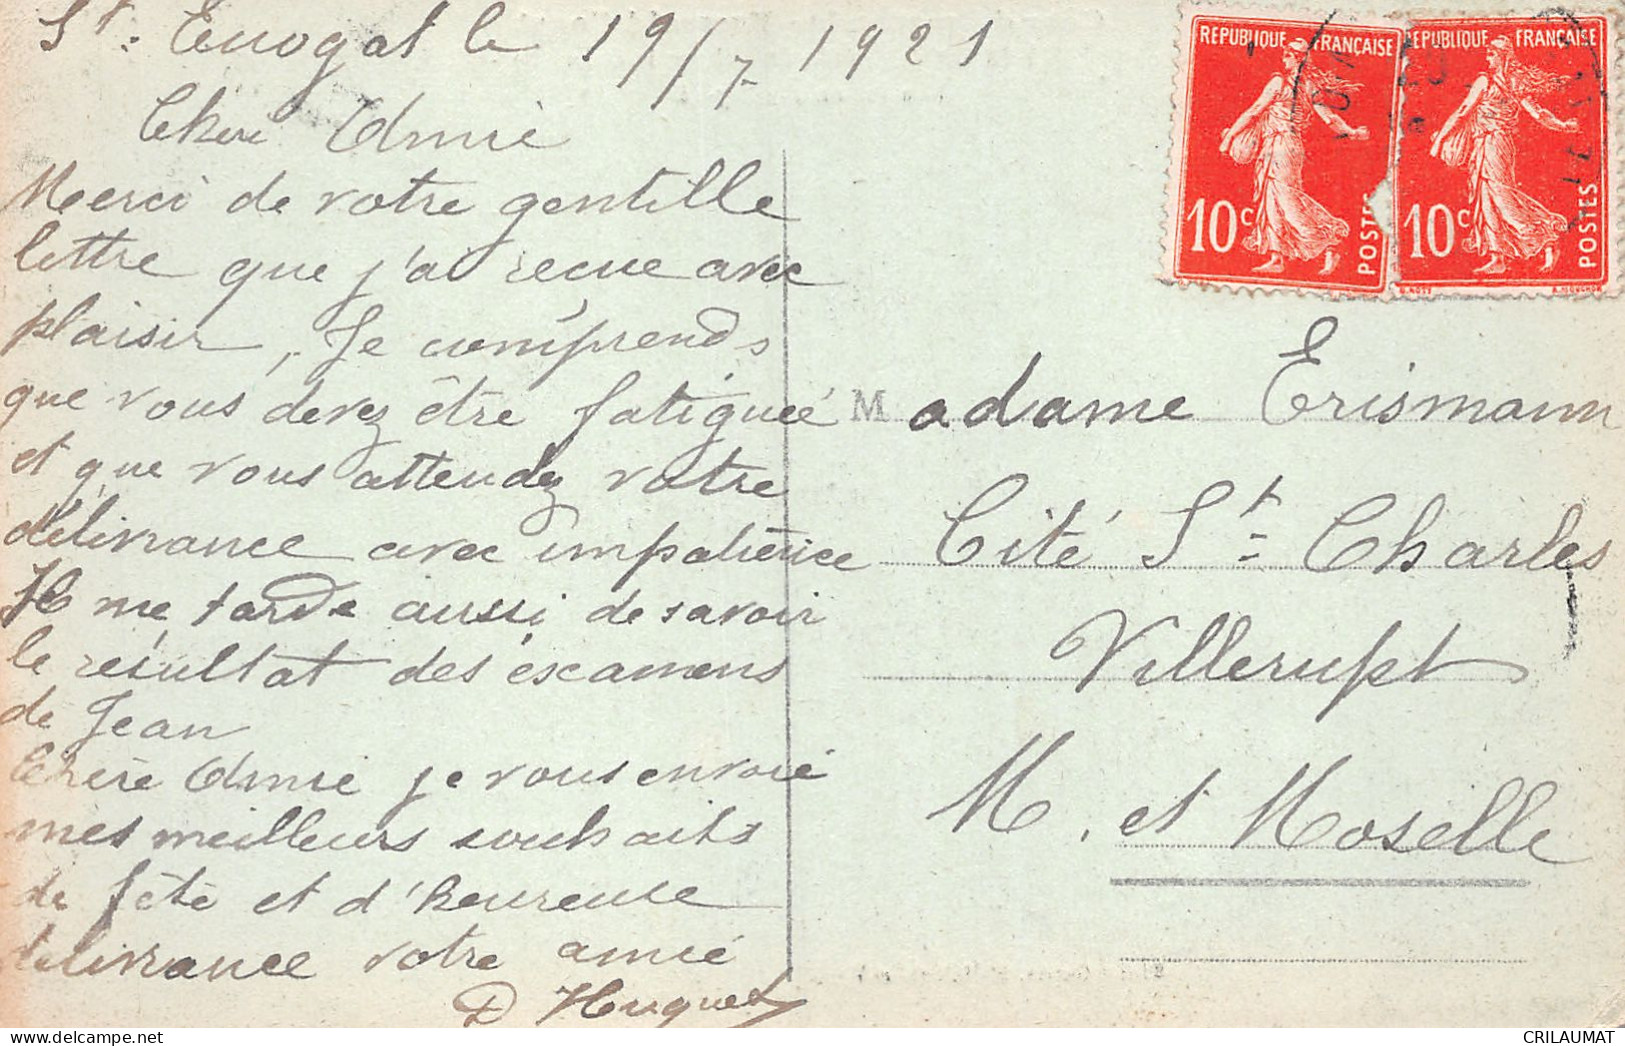 St. Enogat le 19/7 1921
Chère Amie
Merci de votre gentille
lettre que j'ai recue avec
plaisir, Je comprends
que vous devez être fatiguée
et que vous attendez votre
délivrance avec impatience
Il me tarde aussi de savoir
le résultat des éxamens
de Jean
Chère Amie je vous envoie
mes meilleurs souhaits
de fête et d'heureuse
délivrance votre amie
D Huguet
REPUBLIQUE FRANÇAISE
10c POSTES
REPUBLIQUE FRANÇAISE
10c POSTES
Madame Erismann
Cité St. Charles
Villerupt
M. et Moselle
CRILAUMAT